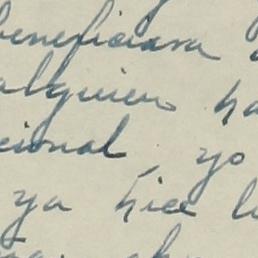 beneficiara
alguien ha
cional, yo
ya hice l